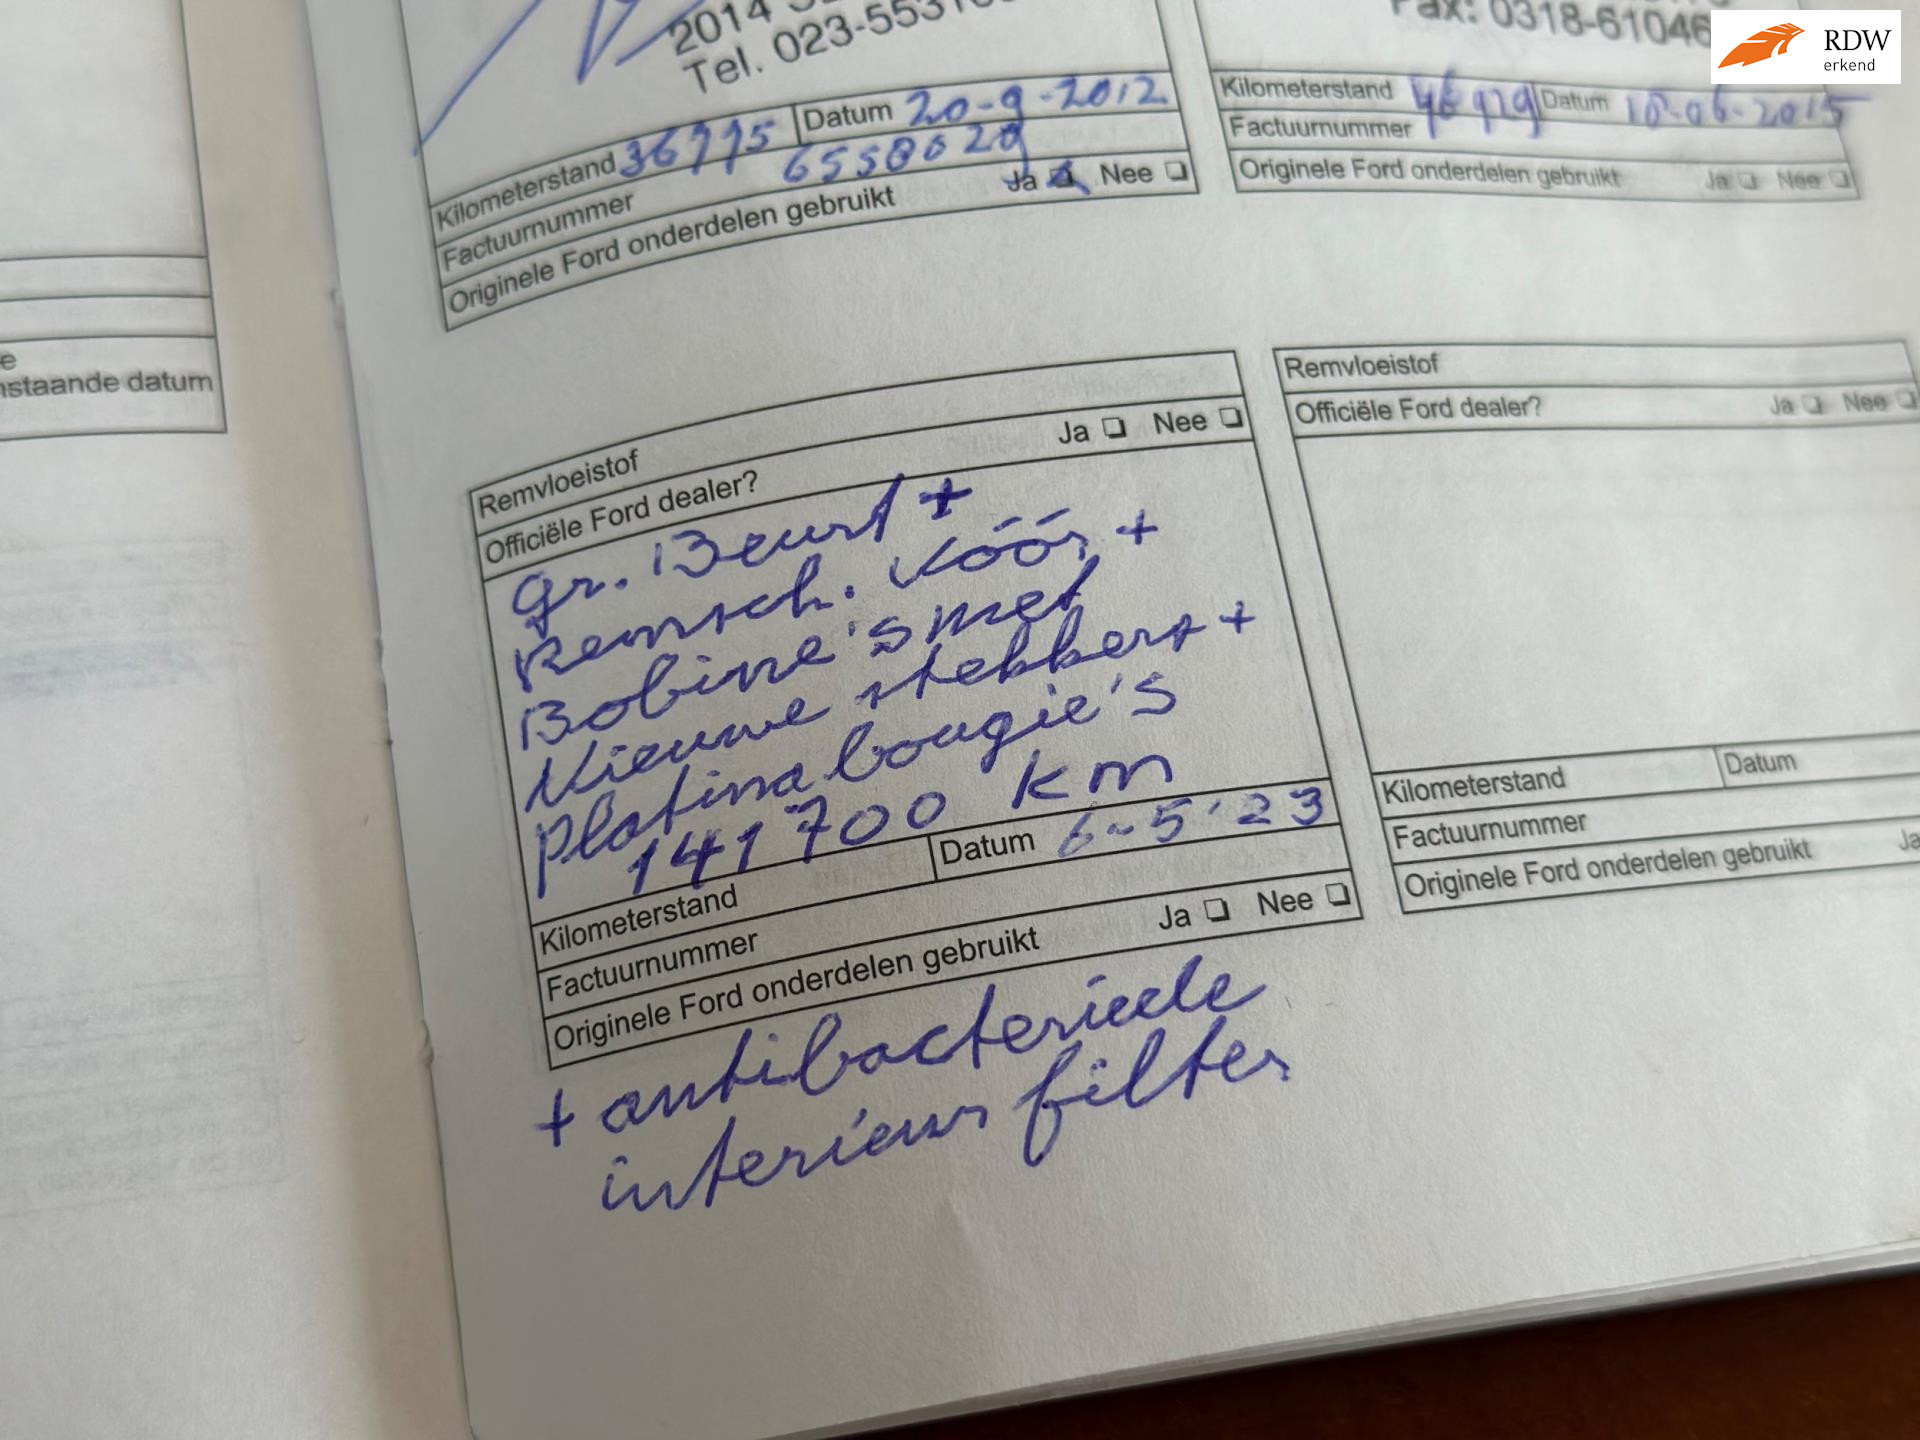 Tel. 023-5531
Fax: 0318-61046
RDW
erkend
Kilometerstand Datum 20-9-2012
Factuurnummer 6558029
Originele Ford onderdelen gebruikt Ja Nee
Kilometerstand Datum 10-06-2015
Factuurnummer
Originele Ford onderdelen gebruikt Ja Nee
nstaande datum
Remvloeistof
Officiële Ford dealer? Ja Nee
gr. Beurt +
Remsch. vóór +
Bobine's met
Nieuwe stekkers +
platina bougie's
141700 km
Kilometerstand Datum 6-5'23
Factuurnummer
Originele Ford onderdelen gebruikt Ja Nee
+ antibacteriele
interieur filter
Remvloeistof
Officiële Ford dealer? Ja Nee
Kilometerstand Datum
Factuurnummer
Originele Ford onderdelen gebruikt Ja